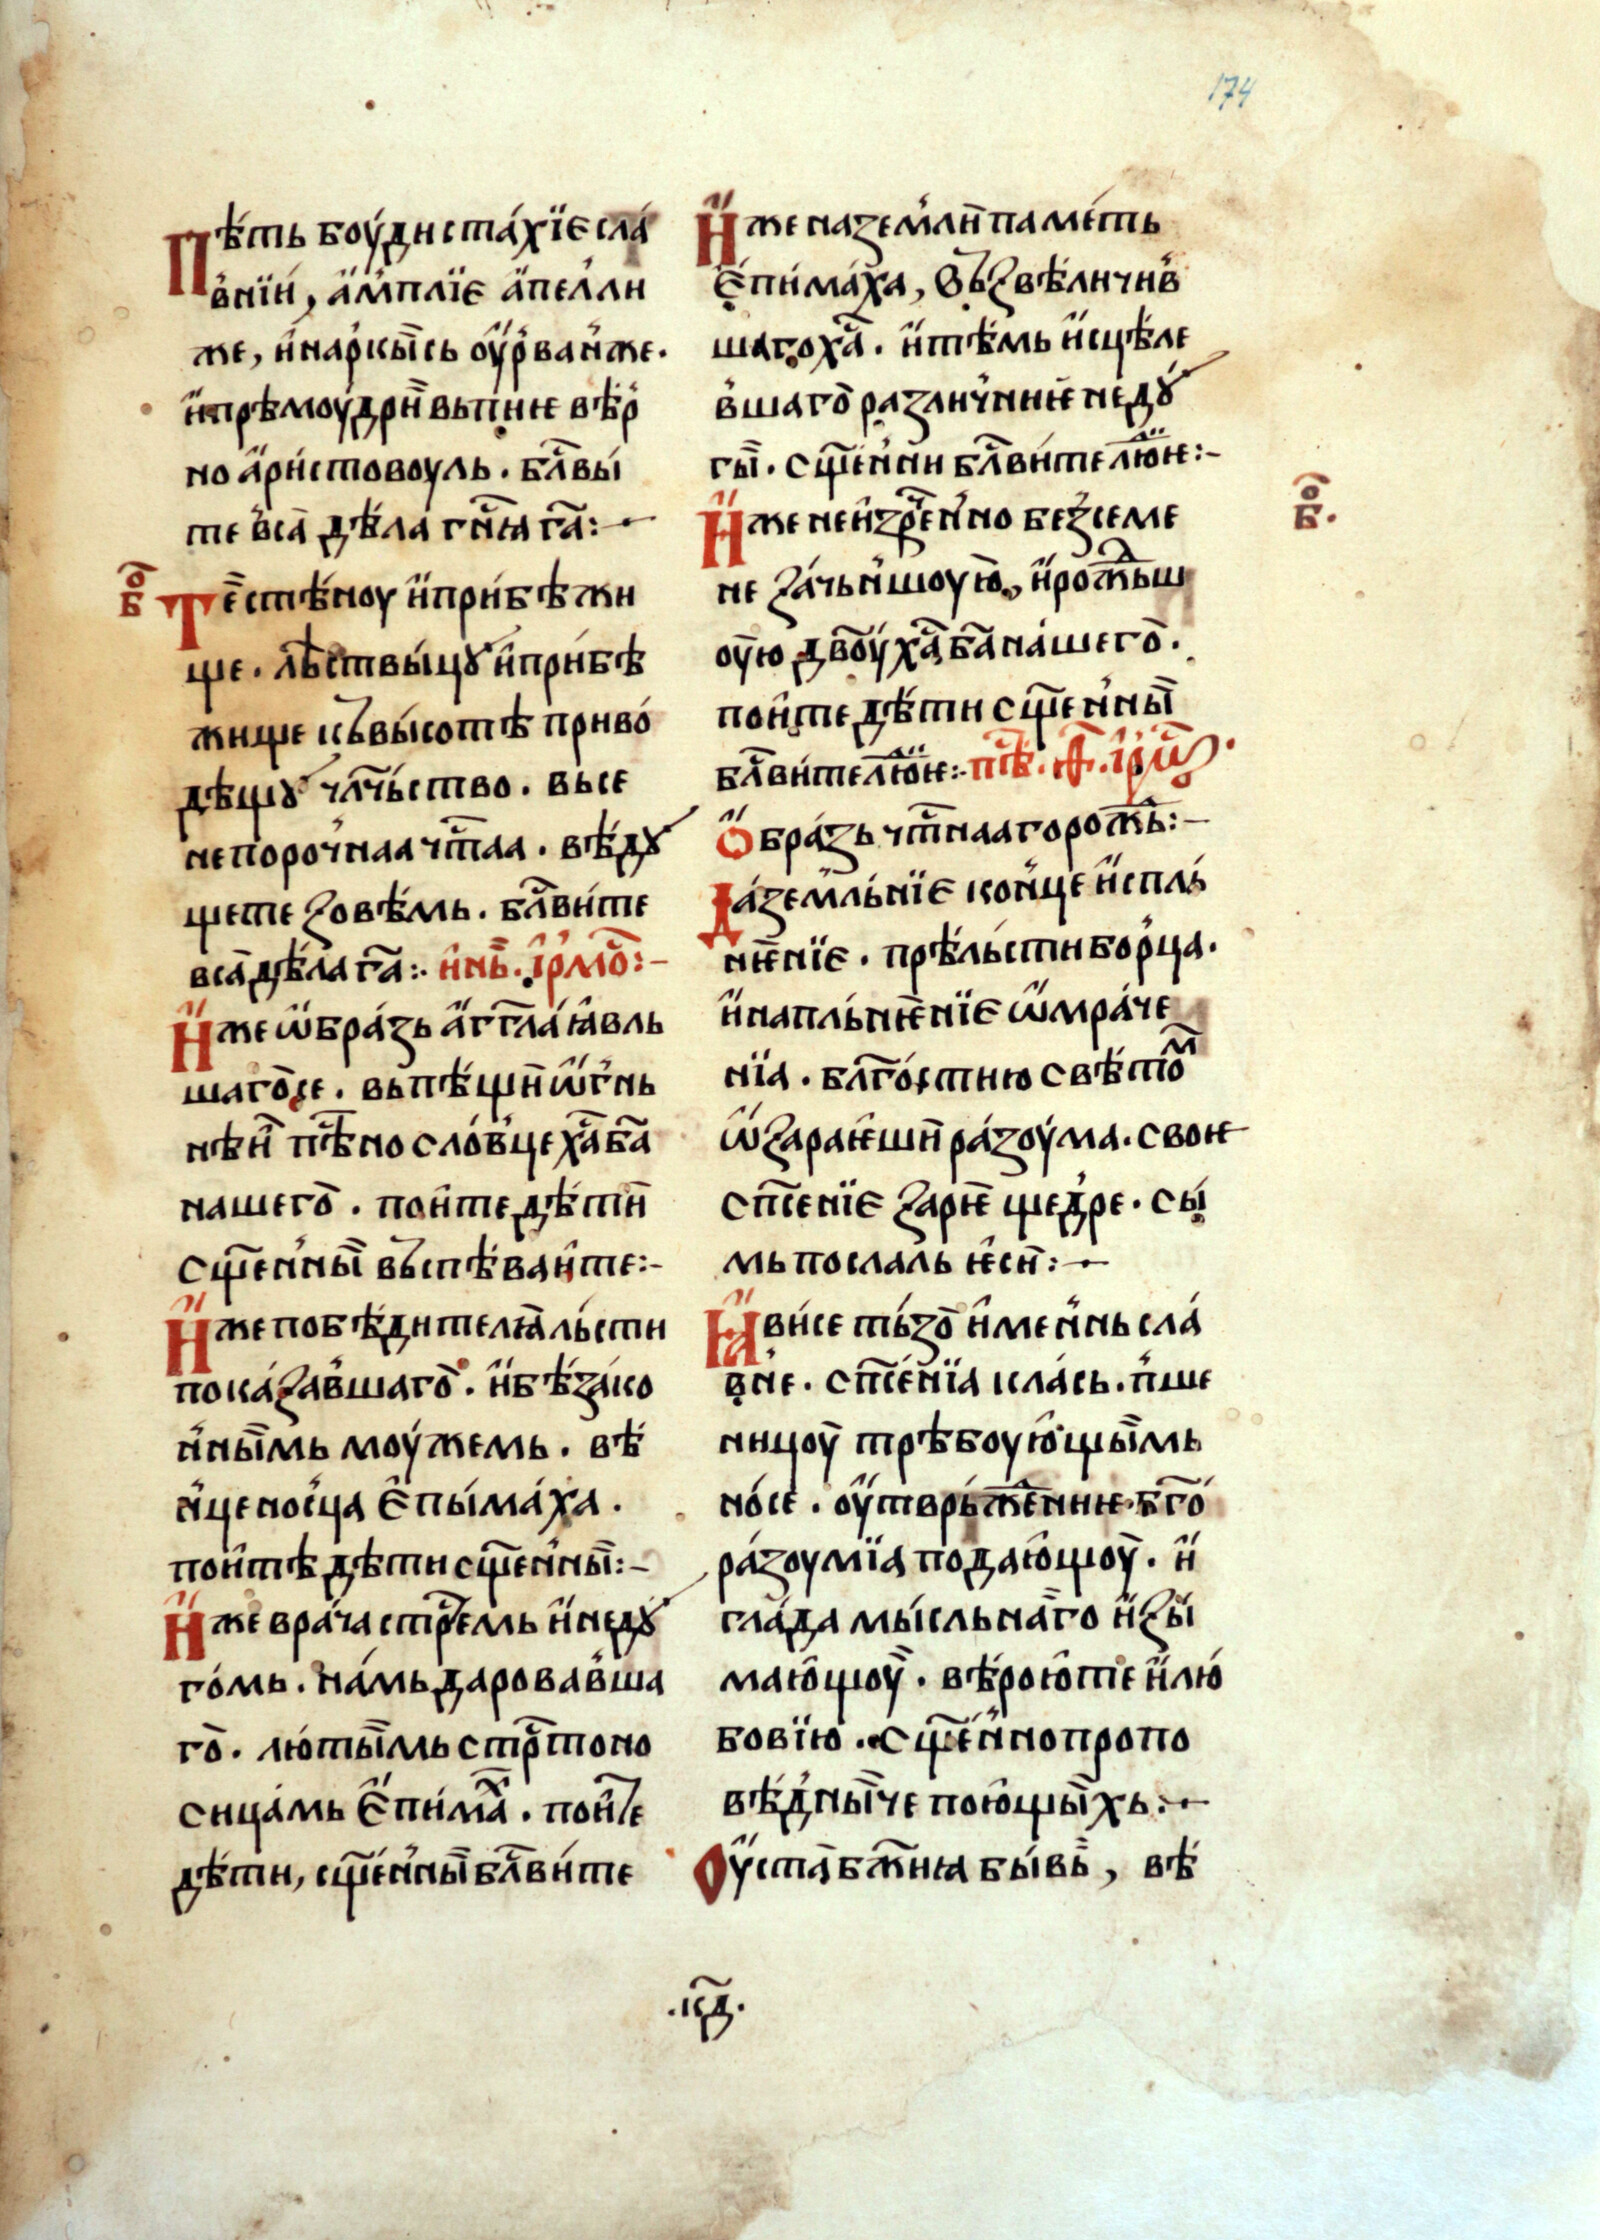 174
Пѣ́ть боу́ди стáхїе слá
в҆нїи́, а҆́мплїе а҆пе́лли
же, и҆наркы̏сь оу҆рван же.
и҆прѣмоу́дри̏ вьпи́не вѣ́р
но а҆ри́стовоуль. бл҃вы́
те в҆са̀ дѣ́ла гн҃ꙗ га҃:
ѡ҃ б
Те̏ стѣ́ноу и҆при́бѣжи
ще. лѣ́ствы́цꙋ и҆при́бѣ
жище къвы́сотѣ приво́
де́щꙋ чл҃чьство. вьсе
непоро́чнаа чт҃аа. вѣ́дꙋ
щете ꙁовѣ́мь. бл҃ви́те
вса̀ дѣ́ла га҃:. и҆нь̏. і҆рмо҃:
И҆же ѡ҆брáзь а҆гг҃лá ꙗ҆вль
шаго̀се. вьпѣ́щи̏ ѡ҆гнь
нѣи̏ пѣ҃нословце ха҃ ба҃
нашего̀. пои҆те дѣ́ти̏
сщ҃ен́ны̏ вьспѣ́ваи҆те:
И҆же побѣ́дителꙗ̀ льсти
покáꙁав҆шаго̀. и҆бѣ́зáко
н́ны̏мь моу́жемь. вѣ
н́це носца е҆пы́мáха.
пои҆тѣ дѣ́ти сщ҃ен́ны̏:
И҆же врáча стр҃емь и҆недꙋ
го́мь. нáмь даровав҆ша
го̀. лю́ты̏мь стр҃тоно
сицáмь е҆пи́ма҃х. пои҆те
дѣ́ти, сщ҃ен́ны̏ бл҃ви́те
И҆же наземли̏ паме́ть
е҆пи́мáха, въꙁвѣ́личив҆
шаго ха҃. и҆тѣ́мь и҆сцѣ́ле
в҆шаго̀ различ́ние недꙋ́
гы̏. сщ҃ен́ни бл҃ви́те лю҃не:
ѡ҃ б.
И҆же неи҆зр҃ен́но беꙁ́семе
не ꙁáчьн́шоую̀, и҆рождьш
оу́ю дв҃оу́ ха҃ ба҃ нáшего̀.
пои҆те дѣ́ти сщ҃ен́ны̏
бл҃ви́те лю҃не:. пѣ҃. ѳ҃. і҆рмѡ҃.
Ѻ҆брáзь чт҃наагорож҃ь:
Да́земльнїе кон́це и҆спль́
не̏нїе. прѣ́льсти бор́ца.
и҆напльне̏нїе ѡ҆мрáче
нїа. благо́стию свѣ́том
ѡ҆ꙁараѥ҆ши̏ рáзоу́ма. свое
сп҃сенїе ꙁаре̏ щед́ре. сы́
мь послаль ѥ҆си̏:
Ꙗ҆ви́се тьзо̀ и҆мен́нь слá
в҆не. сп҃се́нїа клáсь. п҆ше
ницоу̀ трѣбоую҆щы̏мь
но́се. оу҆тврьжд҃енние. бг҃о́
рáзоумїа подаю҆щоу̀. и҆
глáда мы́сльнаго и҆ꙁы́
маю҆щоу̀. вѣ́рою҆те и҆лю́
бовїю. сщ҃ен́нопропо
вѣ́дны̏че пою҆щы̏хь:
Оу҆ста̀ бж҃нꙗ бы́вь̏, вѣ́
.кд҃.